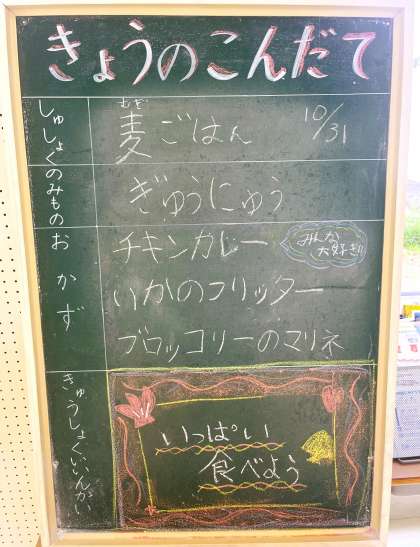 きょうのこんだて
しゅしょく
麦ごはん
むぎ
10/31
のみもの
ぎゅうにゅう
おかず
チキンカレー
みんな
大好き!!
いかのフリッター
ブロッコリーのマリネ
きゅうしょくいいんかい
いっぱい
食べよう